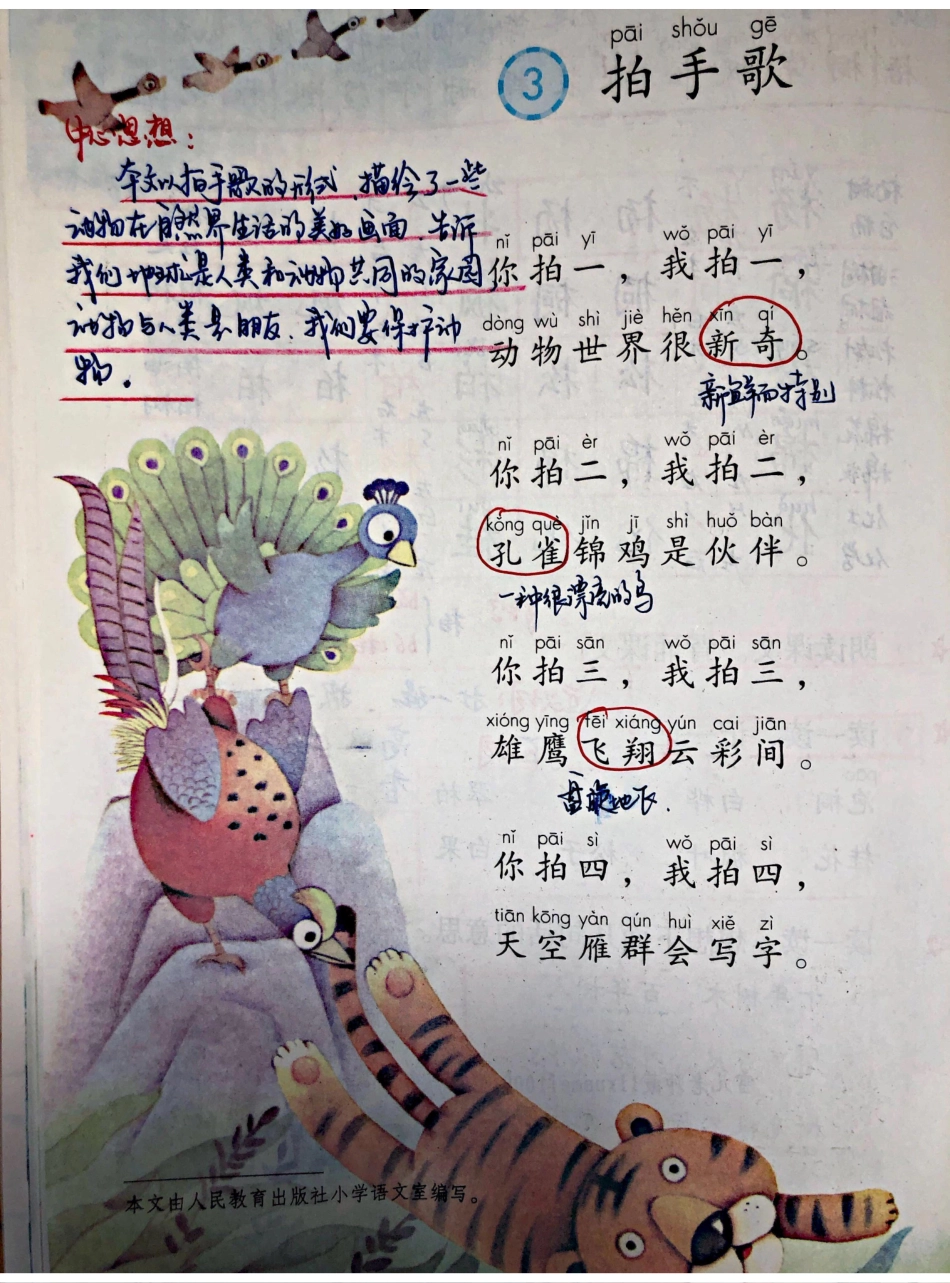 pāi shǒu gē
3 拍手歌
中心思想：
本文以拍手歌的形式，描绘了一些
动物在自然界生活的美好画面，告诉
我们地球是人类和动物共同的家园，
动物与人类是朋友，我们要保护动
物。
nǐ pāi yī wǒ pāi yī
你拍一，我拍一，
dòng wù shì jiè hěn xīn qí
动物世界很新奇。
新鲜而特别
nǐ pāi èr wǒ pāi èr
你拍二，我拍二，
kǒng què jǐn jī shì huǒ bàn
孔雀锦鸡是伙伴。
一种很漂亮的鸟
nǐ pāi sān wǒ pāi sān
你拍三，我拍三，
xióng yīng fēi xiáng yún cai jiān
雄鹰飞翔云彩间。
盘旋地飞.
nǐ pāi sì wǒ pāi sì
你拍四，我拍四，
tiān kōng yàn qún huì xiě zì
天空雁群会写字。
本文由人民教育出版社小学语文室编写。